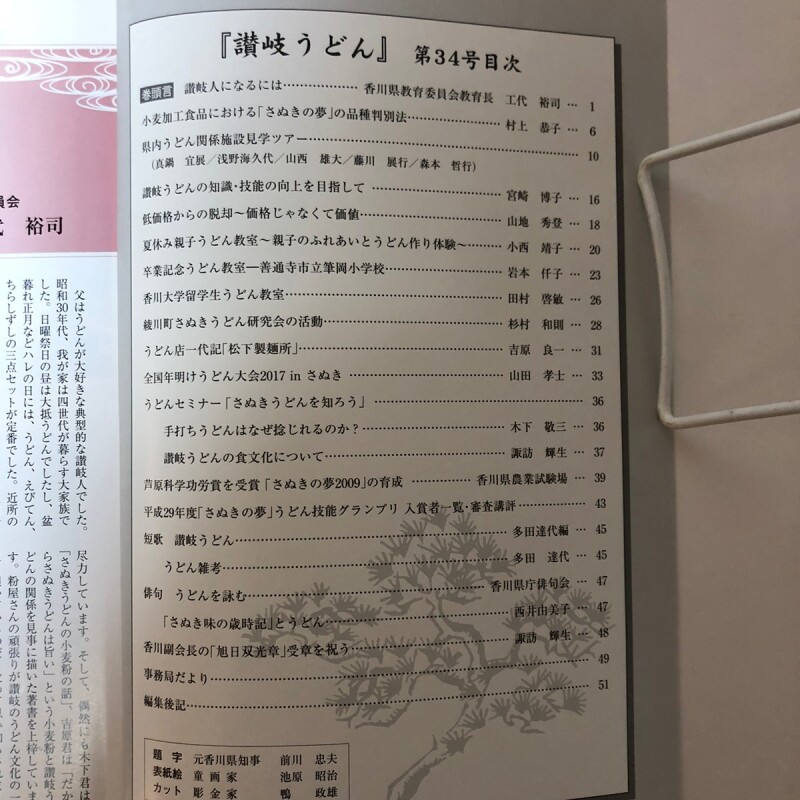 『讃岐うどん』 第34号目次
巻頭言 讃岐人になるには…………………香川県教育委員会教育長 工代 裕司 … 1
小麦加工食品における「さぬきの夢」の品種判別法……………村上 恭子 … 6
県内うどん関係施設見学ツアー…………………………………… 10
(真鍋 宜展／浅野海久代／山西 雄大／藤川 展行／森本 哲行)
讃岐うどんの知識・技能の向上を目指して……………………宮崎 博子 … 16
低価格からの脱却～価格じゃなくて価値………………………山地 秀登 … 18
夏休み親子うどん教室～親子のふれあいとうどん作り体験～……小西 靖子 … 20
卒業記念うどん教室―善通寺市立筆岡小学校…………………岩本 仟子 … 23
香川大学留学生うどん教室………………………………………田村 啓敏 … 26
綾川町さぬきうどん研究会の活動………………………………杉村 和則 … 28
うどん店一代記「松下製麺所」…………………………………吉原 良一 … 31
全国年明けうどん大会2017 in さぬき …………………………山田 孝士 … 33
うどんセミナー「さぬきうどんを知ろう」 …………………………… 36
手打ちうどんはなぜ捻じれるのか？……………………………木下 敬三 … 36
讃岐うどんの食文化について……………………………………諏訪 輝生 … 37
芦原科学功労賞を受賞「さぬきの夢2009」の育成 …………香川県農業試験場 … 39
平成29年度「さぬきの夢」うどん技能グランプリ 入賞者一覧・審査講評…………… 43
短歌 讃岐うどん…………………………………………………多田達代編 … 45
うどん雑考…………………………………………………………多田 達代 … 45
俳句 うどんを詠む………………………………………………香川県庁俳句会 … 47
「さぬき味の歳時記」とうどん…………………………………西井由美子 … 47
香川副会長の「旭日双光章」受章を祝う………………………諏訪 輝生 … 48
事務局だより………………………………………………………… 49
編集後記……………………………………………………………… 51
題 字 元香川県知事 前川 忠夫
表紙絵 童 画 家 池原 昭治
カット 彫 金 家 鴨 政雄
員会
裕司
父はうどんが大好きな典型的な讃岐人でした。
昭和30年代、我が家は四世代が暮らす大家族で
した。日曜祭日の昼は大抵うどんでしたし、盆
暮れ正月などハレの日には、うどん、えびてん、
ちらしずしの三点セットが定番でした。近所の
尽力しています。そして、偶然にも木下君は
「さぬきうどんの小麦粉の話」、吉原君は「だか
らさぬきうどんは旨い」という小麦粉と讃岐う
どんの関係を見事に描いた著書を上梓していま
す。粉屋さんの頑張りが讃岐のうどん文化の一